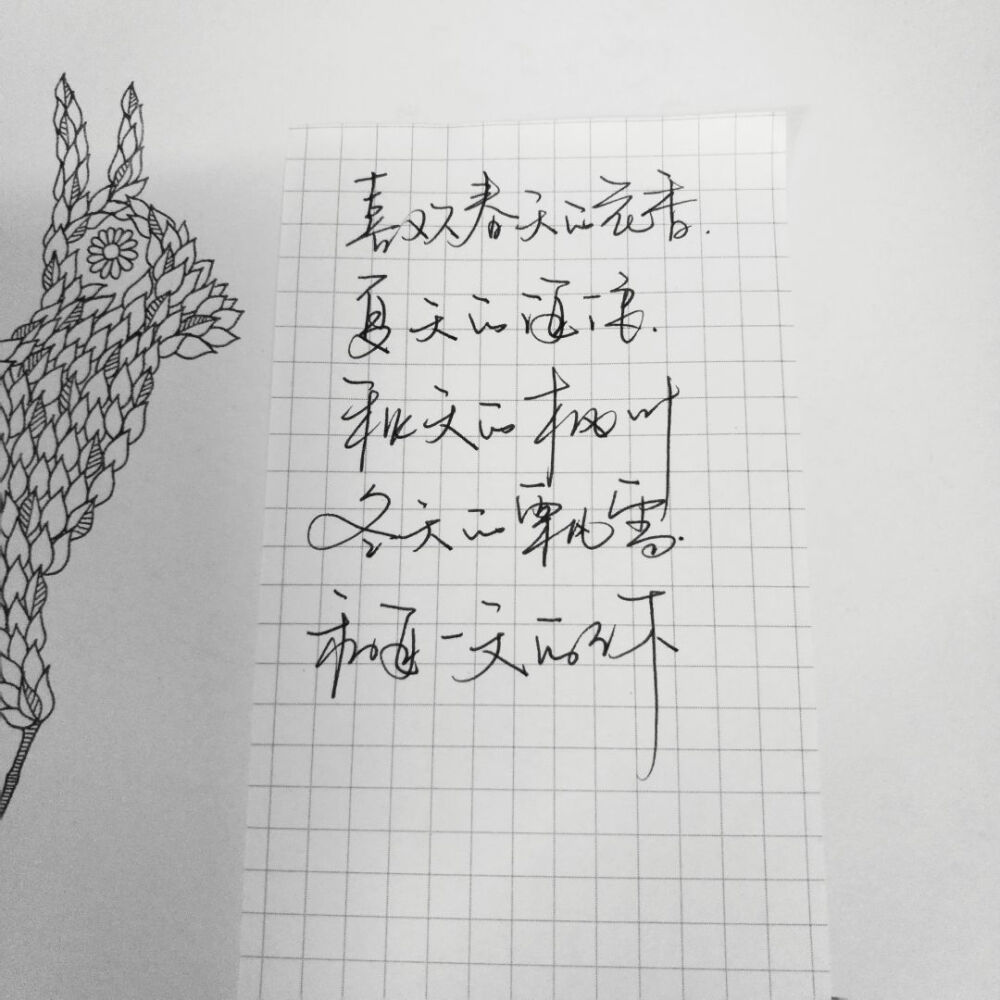 喜欢春天的花香.
夏天的酒凉.
秋天的树叶
冬天的飘雪.
和每一天的你